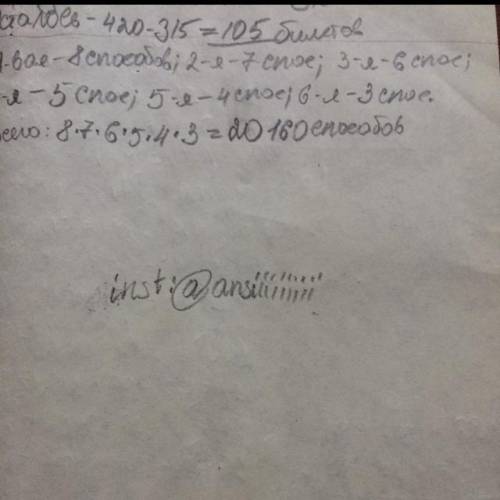 осталось - 420-315=105 билетов
1-вая-8способов; 2-я-7спос; 3-я-6спос;
-я-5спос; 5-я-4спос; 6-я-3спос.
всего: 8*7*6*5*4*3=20160способов
inst:@ansiiiiiiiiii